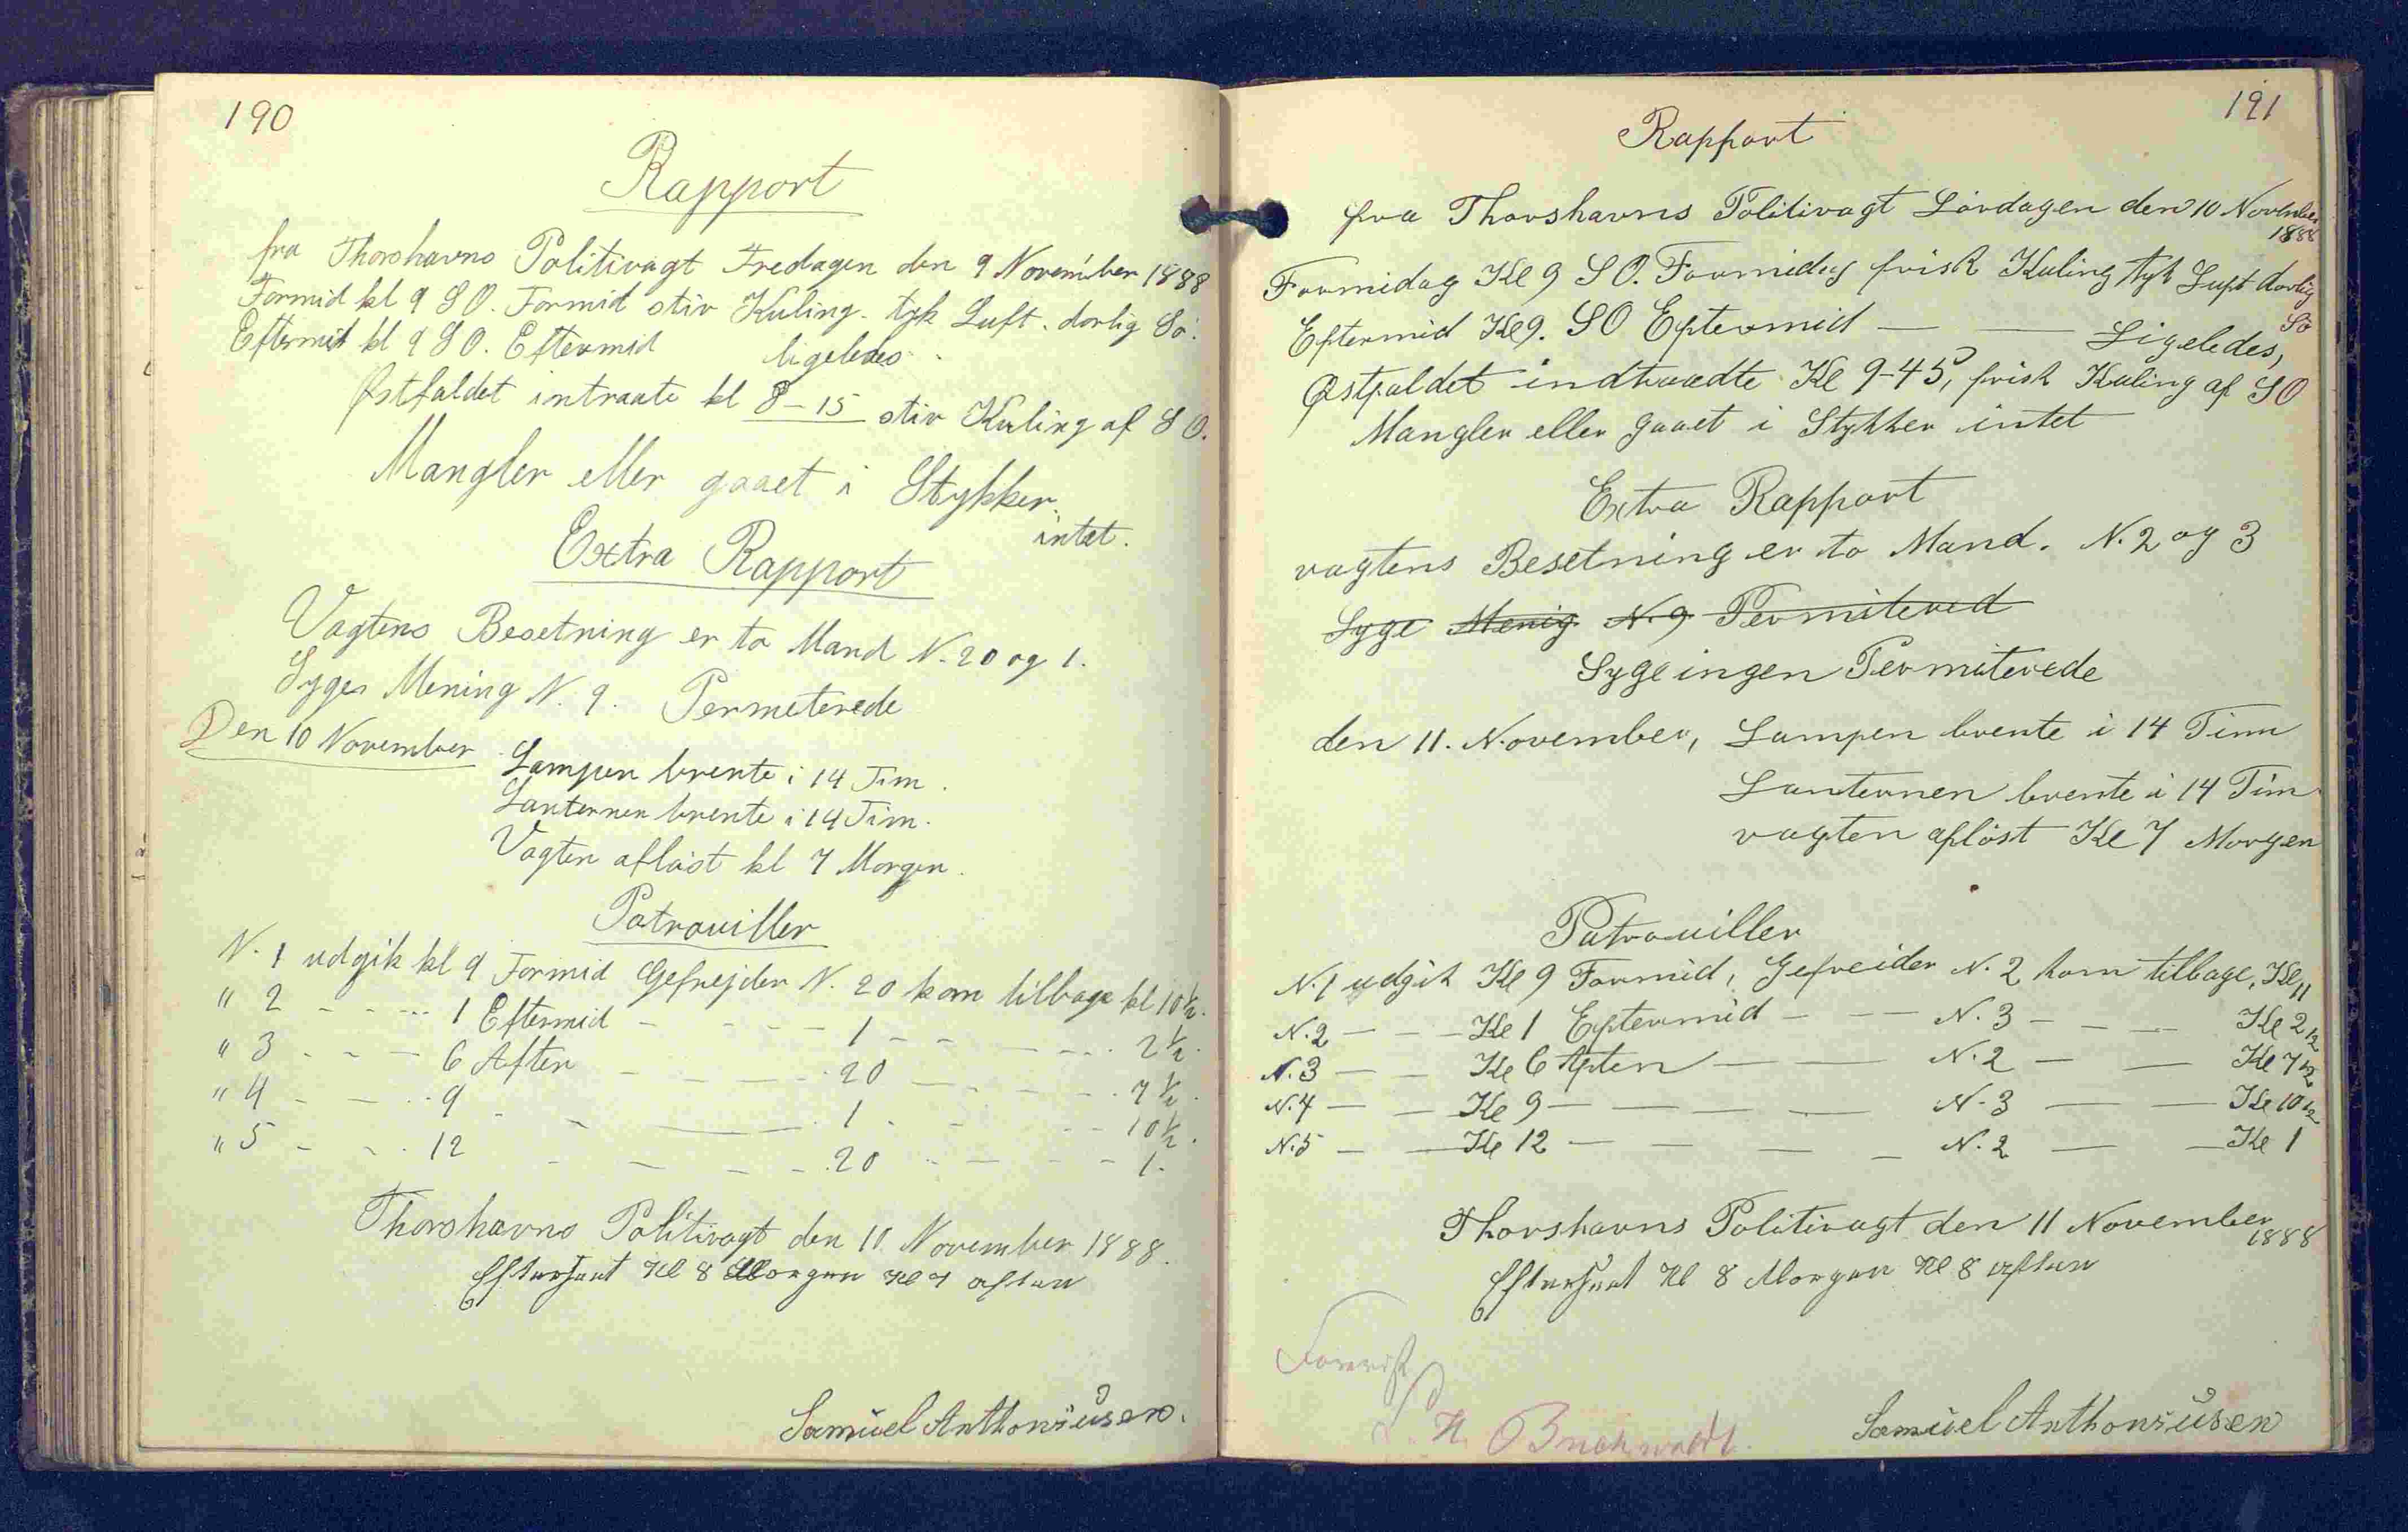 190
Rapport
fra Thorshavns Politivagt Fredagen den 9 November 1888
Formid kl 9 S O. Formid stiv Kuling. tyk Luft. dorlig Sö.
Eftermit kl 9 S O. Eftermid ligeledes
Østfaldet intraate kl 8-15 stiv Kuling af S O.
Mangler eller gaaet i Stykker.
intet.
Extra Rapport
Vagtens Besetning er to Mand N. 20 og 1.
Syges Mening N. 9. Permeterede
Den 10 November Lampen brente i 14 Tim.
Lanternen brente i 14 Tim.
Vagten aflöst kl 7 Morgen.
Patrouiller
N. 1 udgik kl 9 Formid Gefrejder N. 20 kom tilbage kl 10 1/2.
" 2 - - - 1 Eftermid - - - 1 - - - 2 1/2.
" 3 - - - 6 Aften - - - 20 - - - 7 1/2.
" 4 - - - 9 - - - 1 - - - 10 1/2.
" 5 - - - 12 - - - 20 - - - 1.
Thorshavns Politivagt den 10 November 1888.
Efterseet Kl 8 Morgen Kl 7 aften
Samüel Anthoniüsen.
191
Rapport
fra Thorshavns Politivagt Lördagen den 10 November
1888
Formidag Kl 9 S O. Formidag frisk Kuling tyk Luft dorlig
Sö
Eftermid Kl 9. S O Eftermid — — Ligeledes,
Østfaldet indtraadte Kl 9-45, frisk Kuling af S O
Mangler eller gaaet i Stykker intet
Extra Rapport
vagtens Besetning er to Mand. N. 2 og 3
Syge Menig N. 9 Permitered
Syge ingen Permiterede
den 11. November, Lampen brente i 14 Tim
Lanternen brente i 14 Tim
vagten aflöst Kl 7 Morgen
Patrouiller
N. 1 udgik Kl 9 Formid, Gefreider N. 2 kom tilbage, Kl 11
N. 2 — — Kl 1 Eftermid — — N. 3 — — Kl 2 1/2
N. 3 — — Kl 6 Aften — — N. 2 — — Kl 7 1/2
N. 4 — — Kl 9 — — — N. 3 — — Kl 10 1/2
N. 5 — — Kl 12 — — — N. 2 — — Kl 1
Thorshavns Politivagt den 11 November
1888
Efterseet Kl 8 Morgen Kl 8 aften
Forevist
Buchwaldt.
Samüel Anthoniüsen